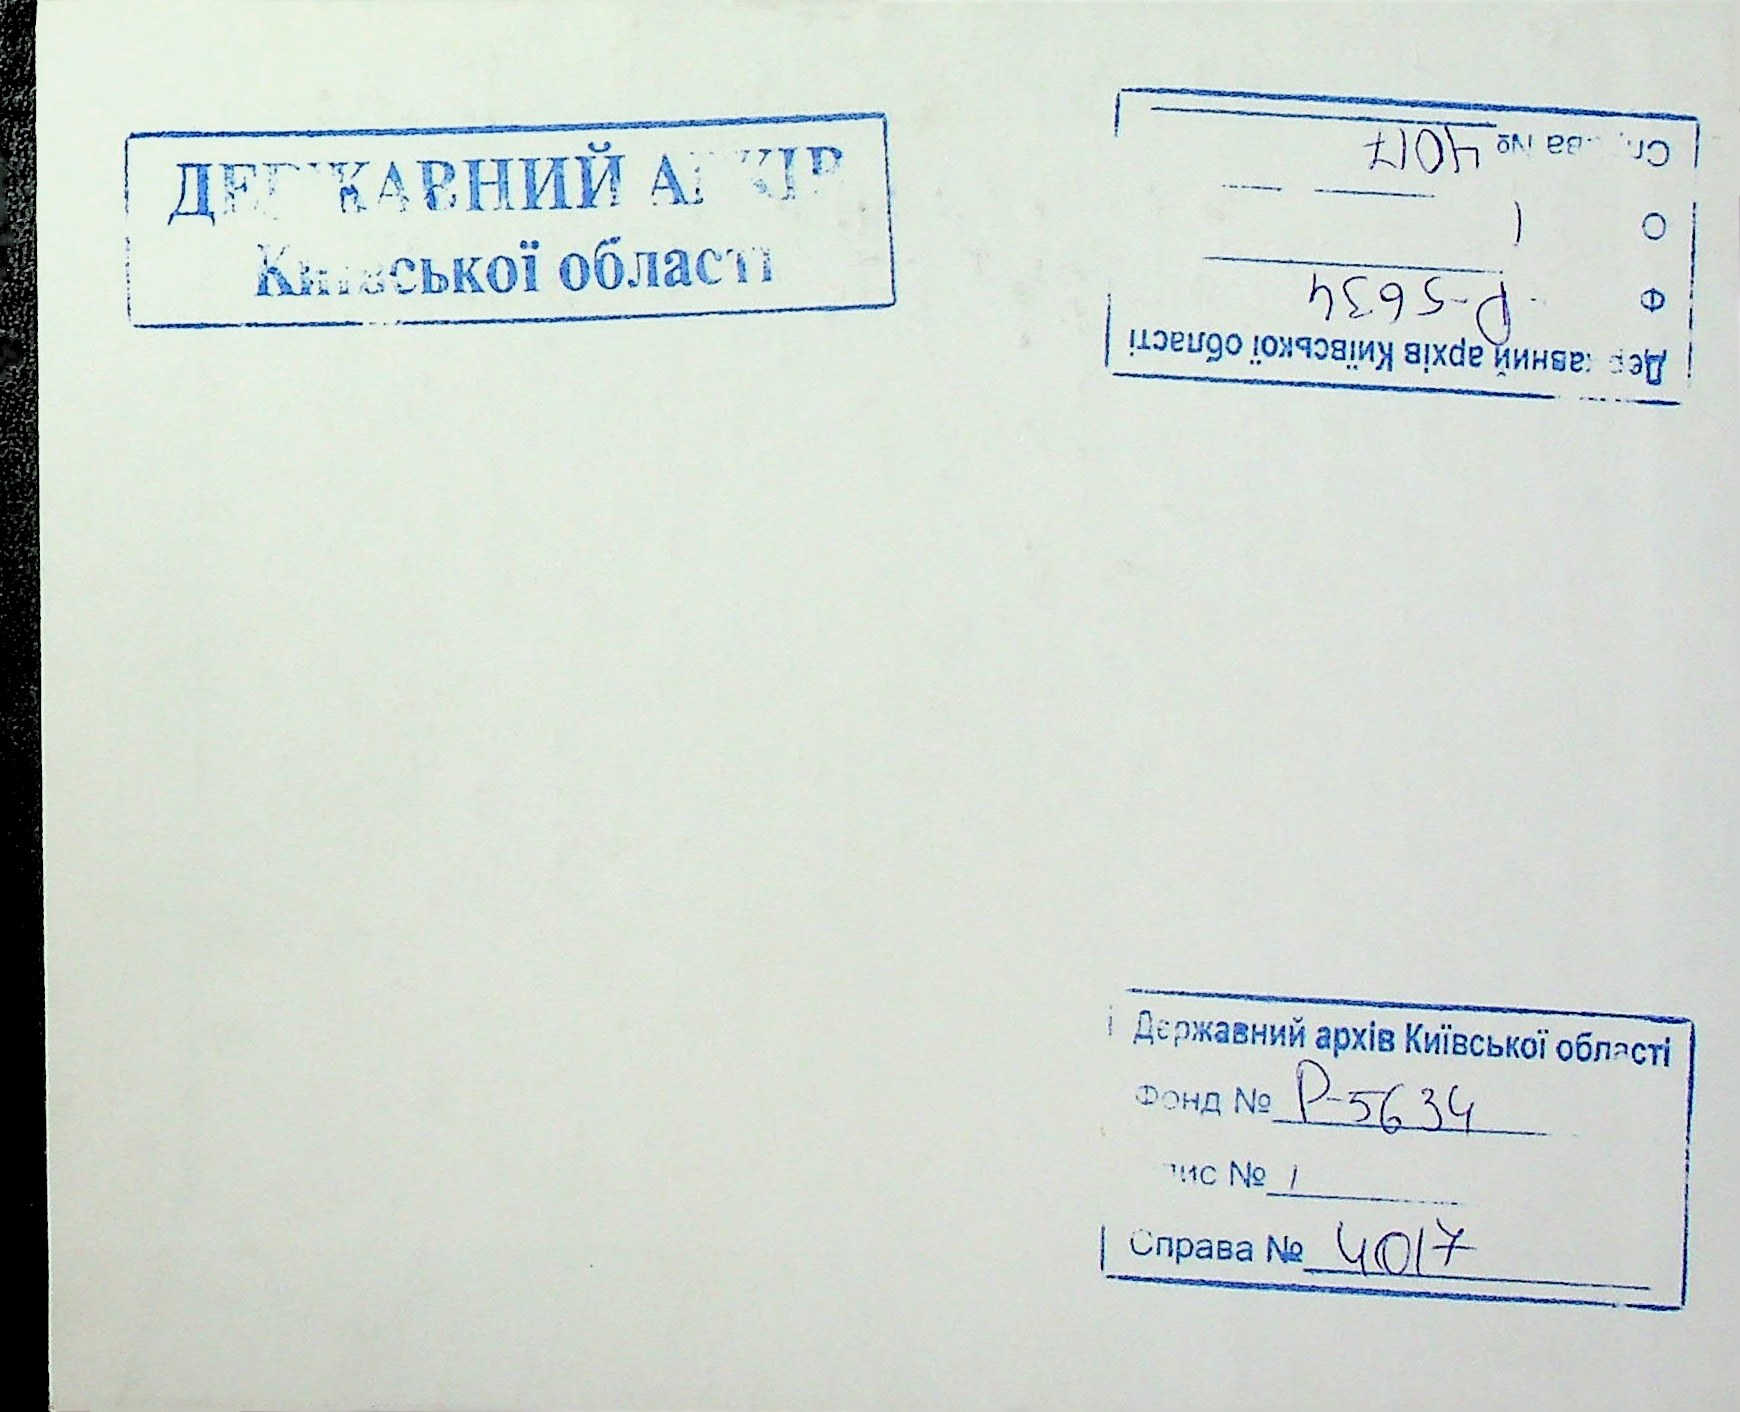 ДЕРЖАВНИЙ АРХІВ
Київської області
Державний архів Київської області
Ф Р-5634
О 1
Справа № 4017
Державний архів Київської області
Фонд № Р-5634
Опис № 1
Справа № 4017